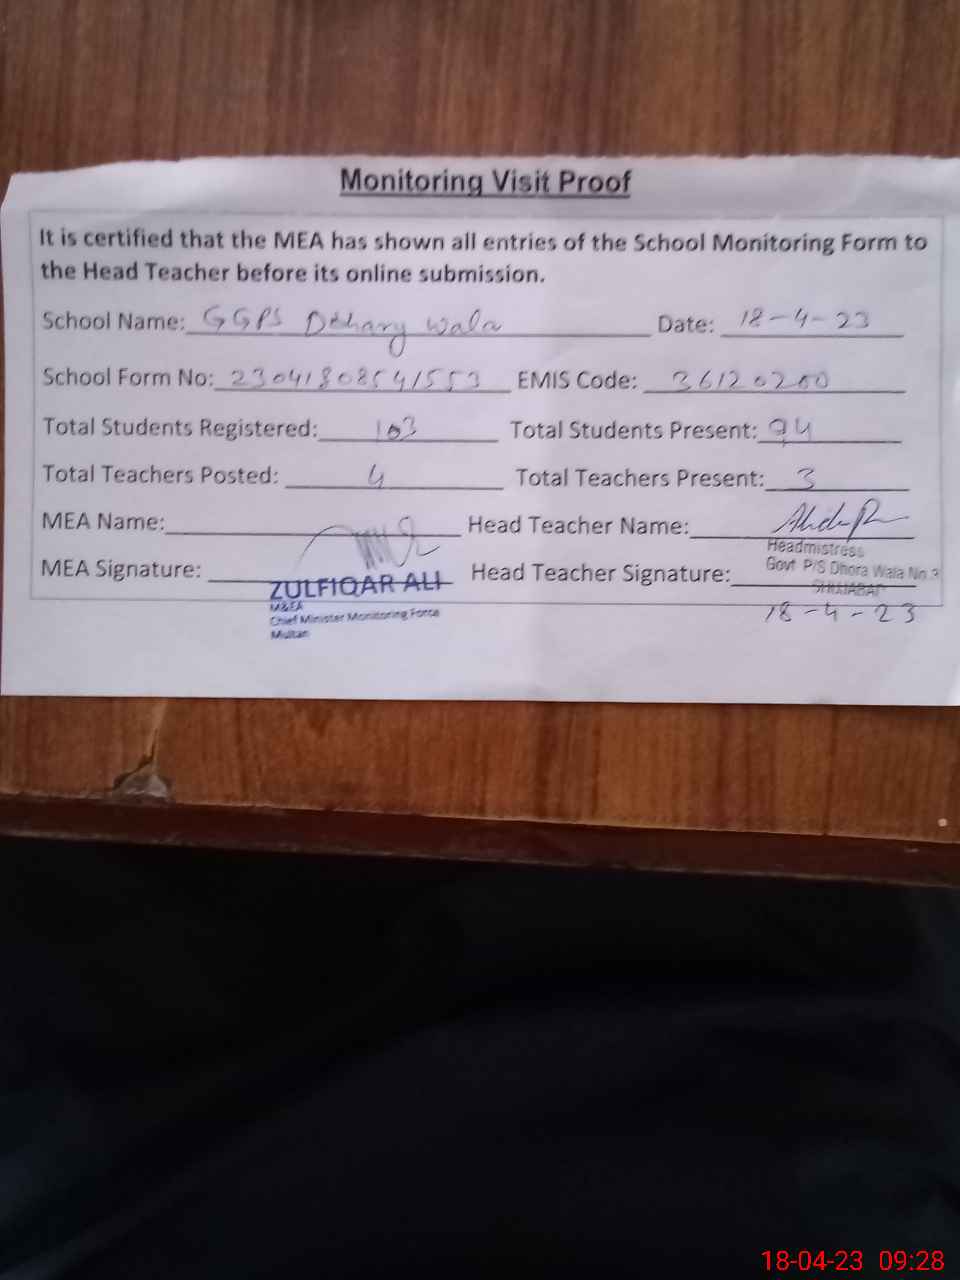 Monitoring Visit Proof
It is certified that the MEA has shown all entries of the School Monitoring Form to
the Head Teacher before its online submission.
School Name: GGPS Dohary Wala Date: 18-4-23
School Form No: 23041808541553 EMIS Code: 36120200
Total Students Registered: 103 Total Students Present: 94
Total Teachers Posted: 4 Total Teachers Present: 3
MEA Name: Head Teacher Name:
Headmistress
MEA Signature: Head Teacher Signature:
Govt P/S Dhora Wala No 3
ZULFIQAR ALI
SHUJABAD
M&EA
Chief Minister Monitoring Force
Multan
18-4-23
18-04-23 09:28